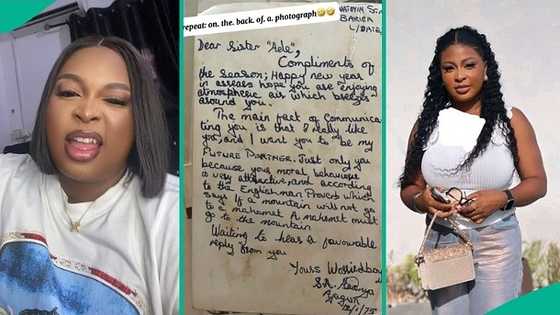 repeat: on. the. back. of. a. photograph🤣🤣
BARIGA
L/DATE
Dear Sister "Ade",
Compliments of
the season; Happy new year
in areeas hope you are enjoying
atmospheric air which breezes
around you.
The main fact of communica
ting you is that I really like
you, and I want you to be my
FUTURE PARTNER. Just only you
because your moral behaviour
is very attractive, and according
to the English man Proverb which
says if a mountain will not go
to a mahamet A mahamet must
go to the mountain.
Waiting to hear a favourable
reply from you
Yours Worriedboy